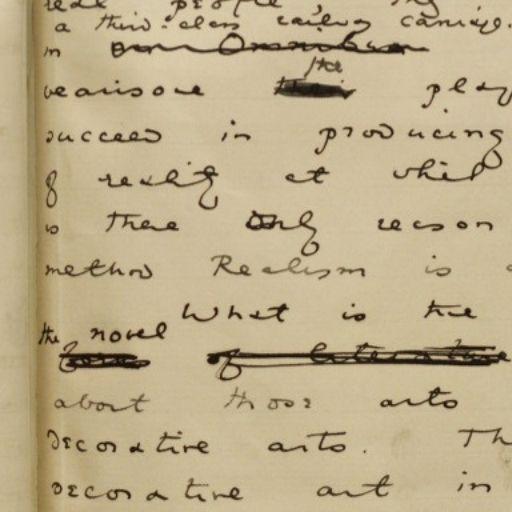 real people they
a third-class railway carriage.
in an Omnibus
the
wearisome play
succeed in producing
of reality at which
is there only reason
method Realism is
What is true
the novel
of literature
about those arts
decorative arts. Th
decorative art in